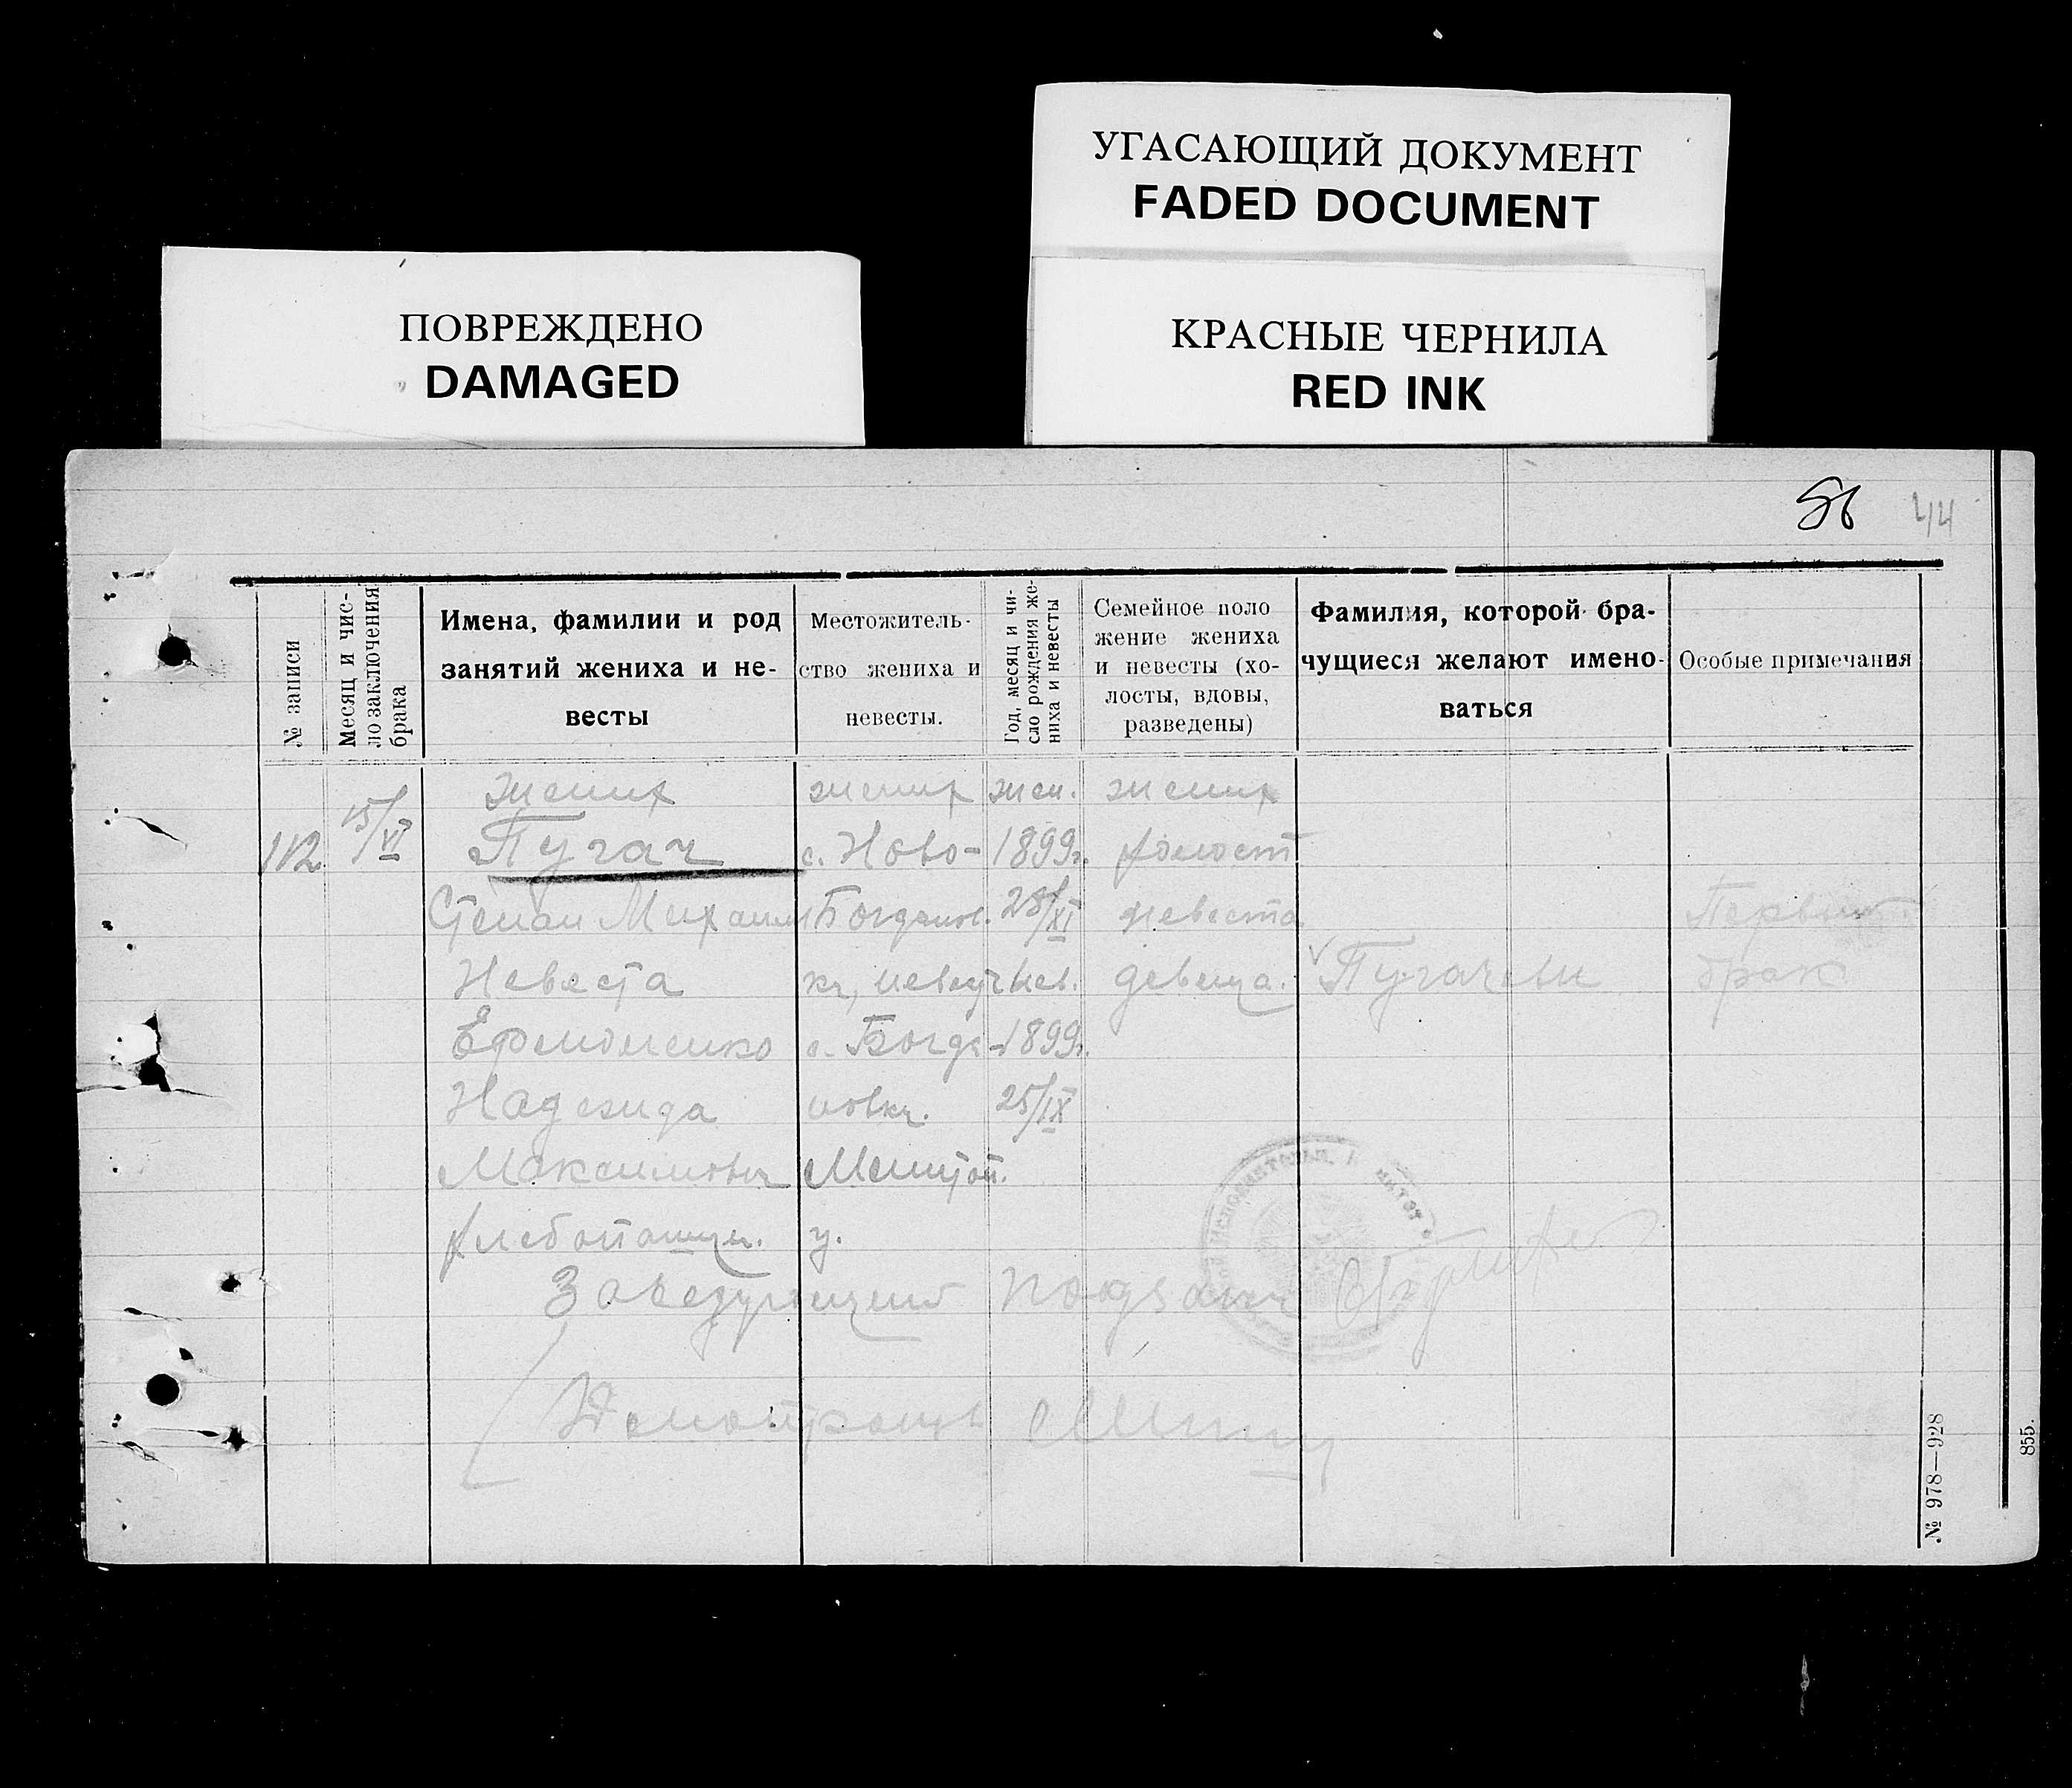 УГАСАЮЩИЙ ДОКУМЕНТ
FADED DOCUMENT
ПОВРЕЖДЕНО
DAMAGED
КРАСНЫЕ ЧЕРНИЛА
RED INK
44
№ записи
Месяц и чис-
ло заключения
брака
Имена, фамилии и род
занятий жениха и не-
весты
Местожитель-
ство жениха и
невесты.
Год, месяц и чи-
сло рождения же-
ниха и невесты
Семейное поло
жение жениха
и невесты (хо-
лосты, вдовы,
разведены)
Фамилия, которой бра-
чущиеся желают имено-
ваться
Особые примечания
112
15/VI
жених
Пугач
Степан Михаил
Невеста
Ефименко
Надежда
Максимовн
хлебопашцы.
жених
с. Ново-
Богданов.
ка, невест
с. Богда-
новка.
Мелитоп.
у.
жен.
1899г.
28/XI
нев.
1899г.
25/IX
жених
холост
невеста
девица.
Пугачевы
Первый
брак
Заведующий Подз
№ 978—928
855.